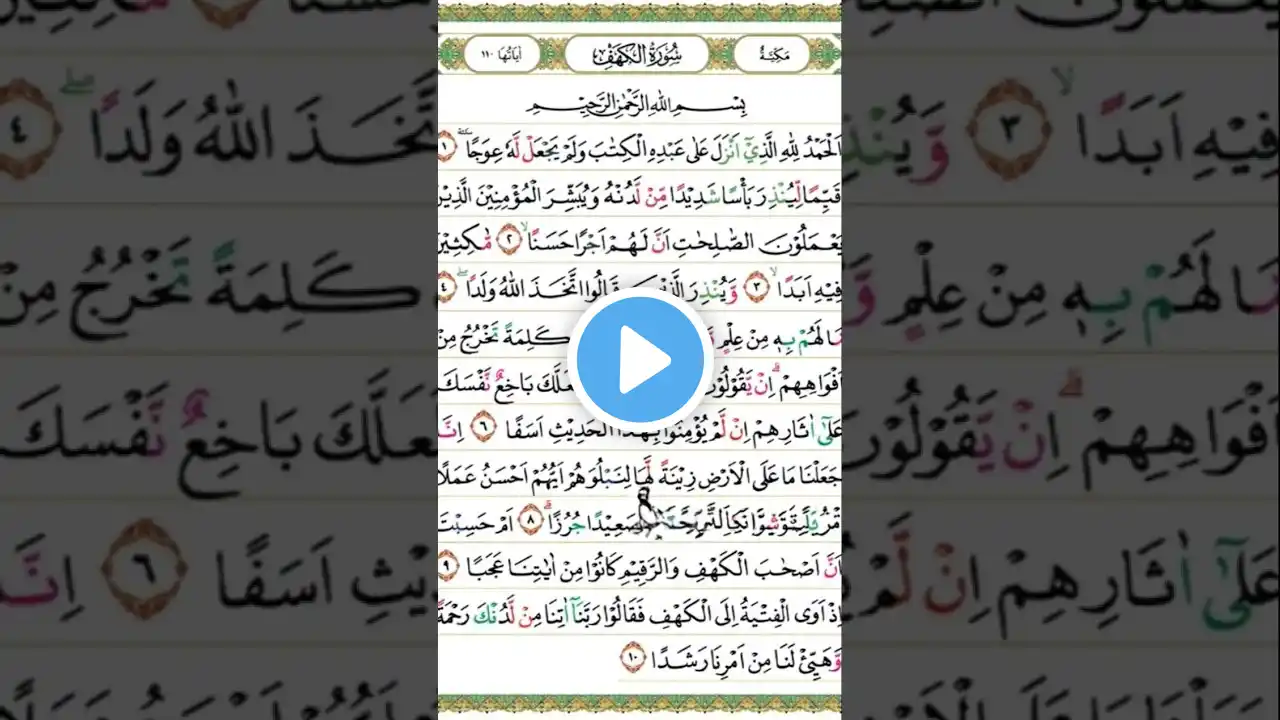 مَكِّيَّةٌ سُوْرَةُ الْكَهْفِ اٰيَاتُهَا ١١٠
بِسْمِ اللّٰهِ الرَّحْمٰنِ الرَّحِيْمِ
اَلْحَمْدُ لِلّٰهِ الَّذِيْٓ اَنْزَلَ عَلٰى عَبْدِهِ الْكِتٰبَ وَلَمْ يَجْعَلْ لَّهٗ عِوَجًا ١
قَيِّمًا لِّيُنْذِرَ بَأْسًا شَدِيْدًا مِّنْ لَّدُنْهُ وَيُبَشِّرَ الْمُؤْمِنِيْنَ الَّذِيْنَ
يَعْمَلُوْنَ الصّٰلِحٰتِ اَنَّ لَهُمْ اَجْرًا حَسَنًا ٢ مّٰكِثِيْنَ
فِيْهِ اَبَدًا ٣ وَّيُنْذِرَ قَالُوا اتَّخَذَ اللّٰهُ وَلَدًا ٤
مَا لَهُمْ بِهٖ مِنْ عِلْمٍ كَلِمَةً تَخْرُجُ مِنْ
اَفْوَاهِهِمْ اِنْ يَّقُوْلُوْنَ بَاخِعٌ نَّفْسَكَ
عَلٰٓى اٰثَارِهِمْ اِنْ لَّمْ يُؤْمِنُوْا بِهٰذَا الْحَدِيْثِ اَسَفًا ٦ اِنَّا
جَعَلْنَا مَا عَلَى الْاَرْضِ زِيْنَةً لَّهَا لِنَبْلُوَهُمْ اَيُّهُمْ اَحْسَنُ عَمَلًا
صَعِيْدًا جُرُزًا ٨ اَمْ حَسِبْتَ
اَنَّ اَصْحٰبَ الْكَهْفِ وَالرَّقِيْمِ كَانُوْا مِنْ اٰيٰتِنَا عَجَبًا ٩
اِذْ اَوَى الْفِتْيَةُ اِلَى الْكَهْفِ فَقَالُوْا رَبَّنَآ اٰتِنَا مِنْ لَّدُنْكَ رَحْمَةً
وَّهَيِّئْ لَنَا مِنْ اَمْرِنَا رَشَدًا ١٠